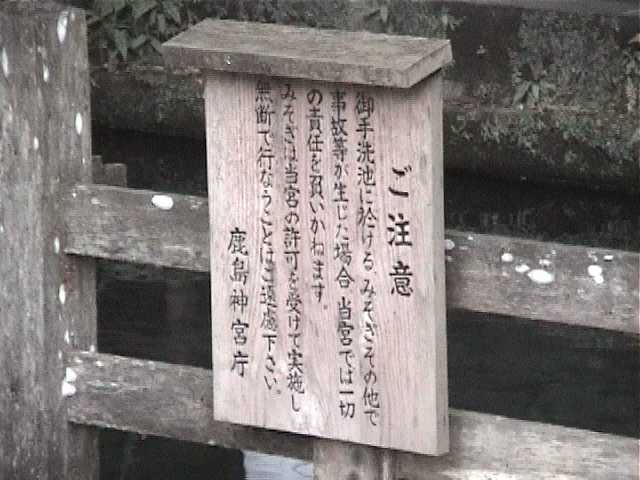 ご注意
御手洗池に於ける、みそぎその他で
事故等が生じた場合 当宮では一切
の責任を負いかねます。
みそぎは当宮の許可を受けて実施し
無断で行なうことはご遠慮下さい。
鹿島神宮庁